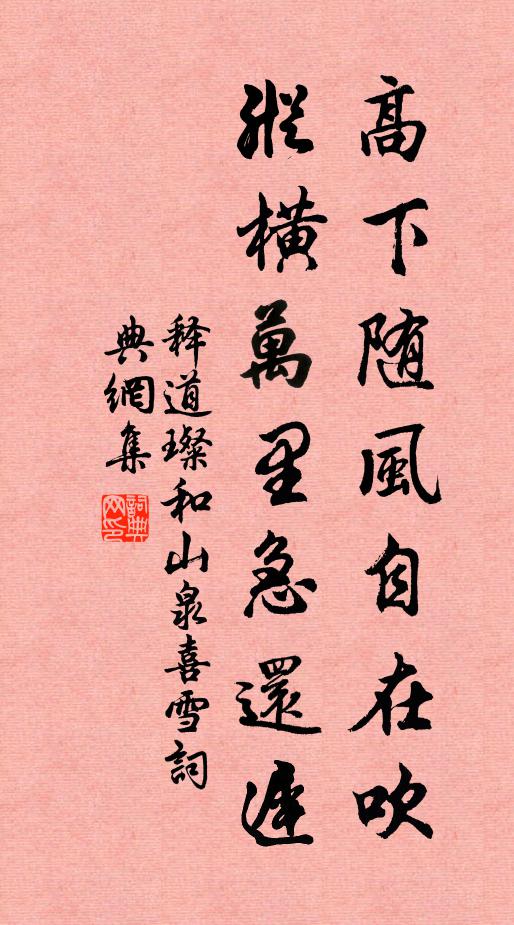 高下随風自在吹
縱橫萬里急還遲
释道璨和山泉喜雪詞
典網集
詞典網印